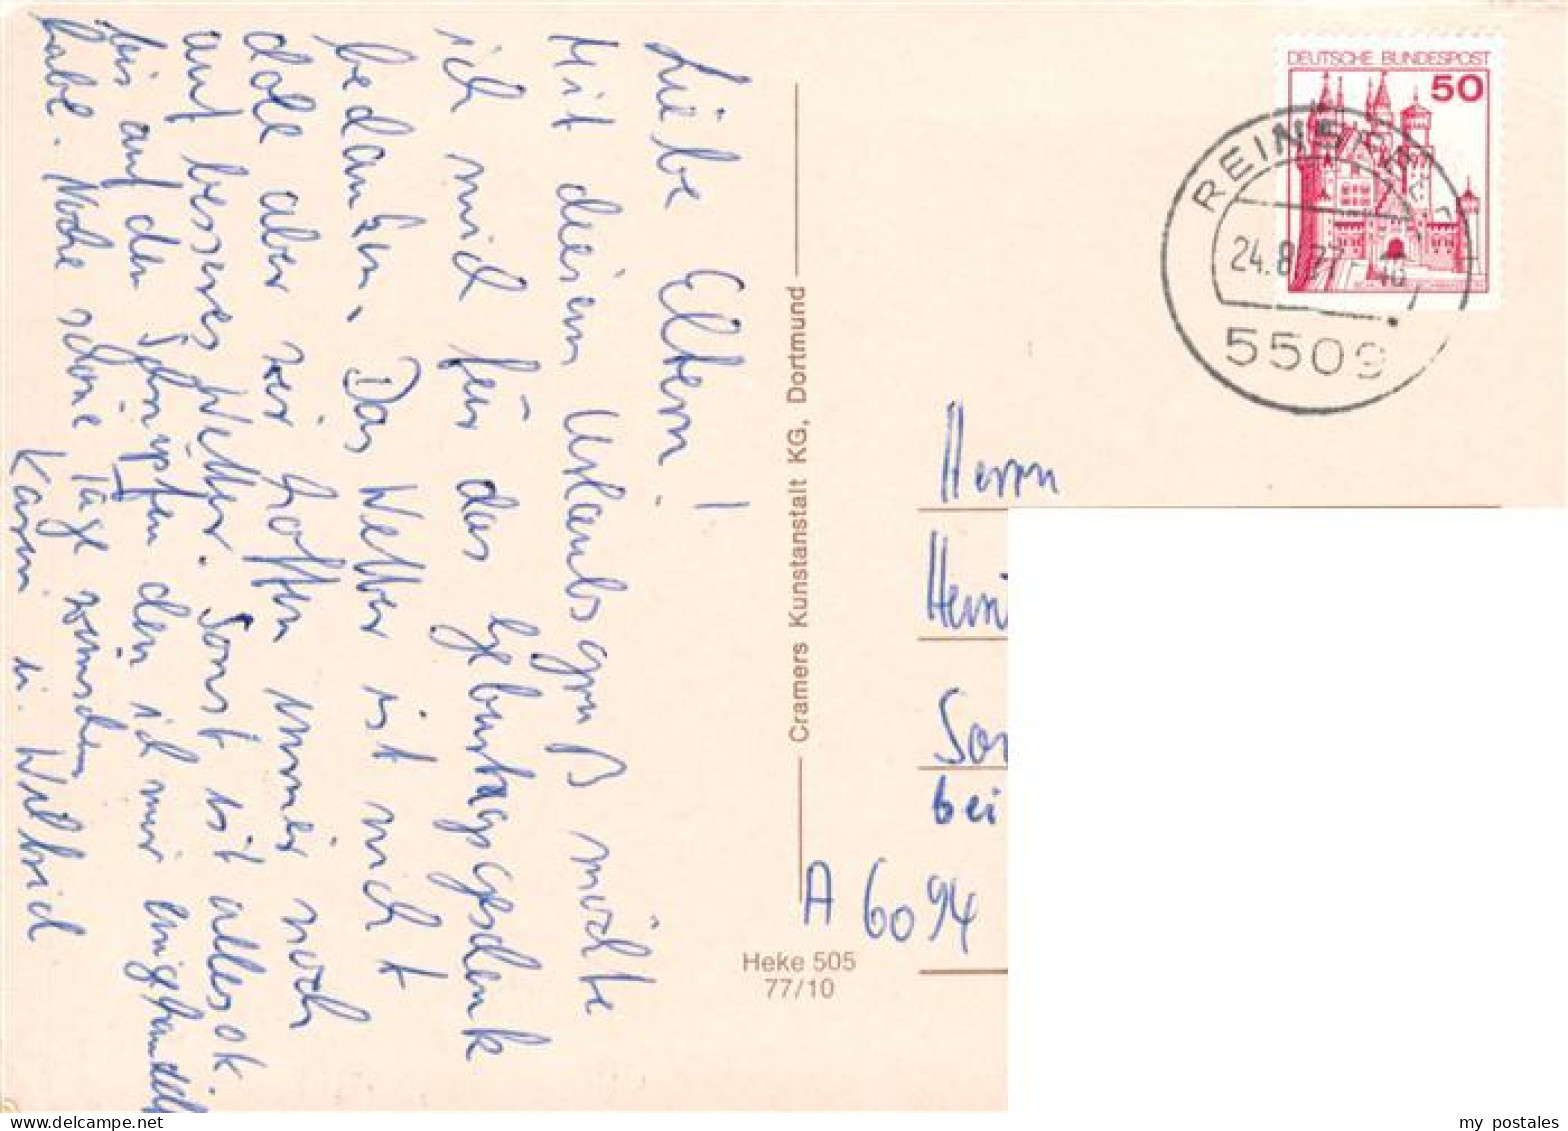 Liebe Eltern!
Mit diesem Urlaubsgruß möchte
ich mich für das Geburtagsgeschenk
bedanken. Das Wetter ist nicht
doll aber wir hoffen immer noch
auf besseres Wetter. Sonst ist alles ok.
bis auf den Schnupfen den ich mir eingehandelt
habe. Noche schöne Tage wünschen
Karin u. Wilfried
Cramers Kunstanstalt KG, Dortmund
Heke 505
77/10
DEUTSCHE BUNDESPOST
50
REINSFELD
24.8.77
5509
Herrn
Hein
Son
bei
A 6094
my postales